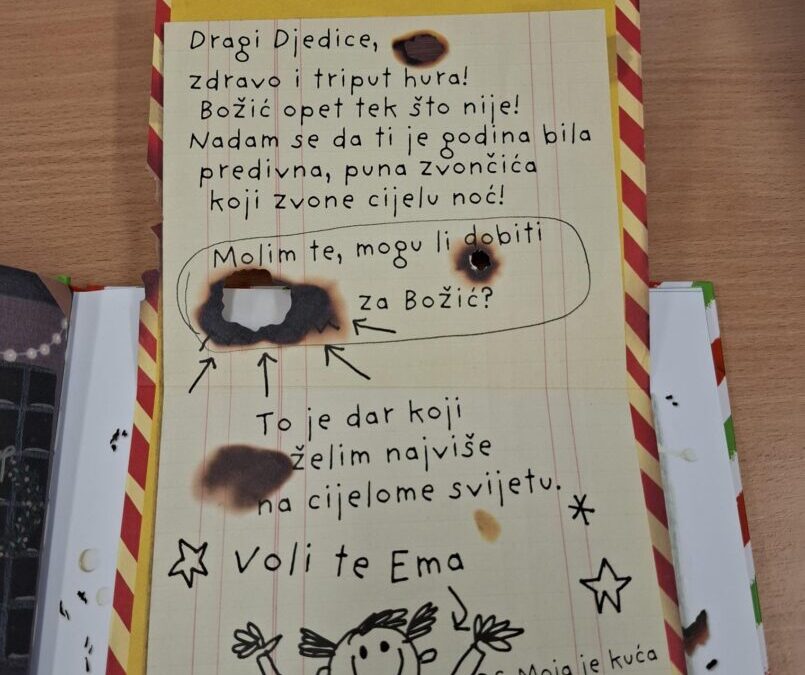 Dragi Djedice,
zdravo i triput hura!
Božić opet tek što nije!
Nadam se da ti je godina bila
predivna, puna zvončića
koji zvone cijelu noć!
Molim te, mogu li dobiti
za Božić?
To je dar koji
želim najviše
na cijelome svijetu.
Voli te Ema
Moja je kuća